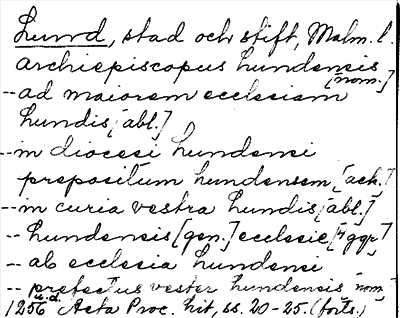 Lund, stad och stift, Malm. l.
archiepiscopus lundensis [nom.]
-- ad maiorem ecclesiam
lundis [abl.]
-- in diocesi lundensi
prepositum lundensem [ack.]
-- in curia vestra lundis [abl.]
-- lundensis [gen.] ecclesie [4 ggr]
-- ab ecclesia lundensi
-- prefectus vester lundensis [nom.]
1256 u.d. Acta Proc. lit, ss. 20-25. (forts.)